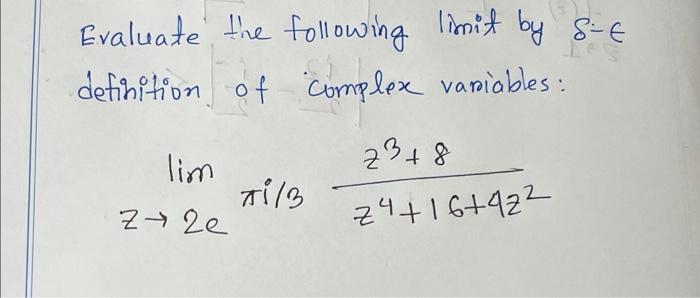 Evaluate the following limit by δ-ε
definition of complex variables:
lim z→2e^πi/3 z^3+8 / z^4+16+4z^2